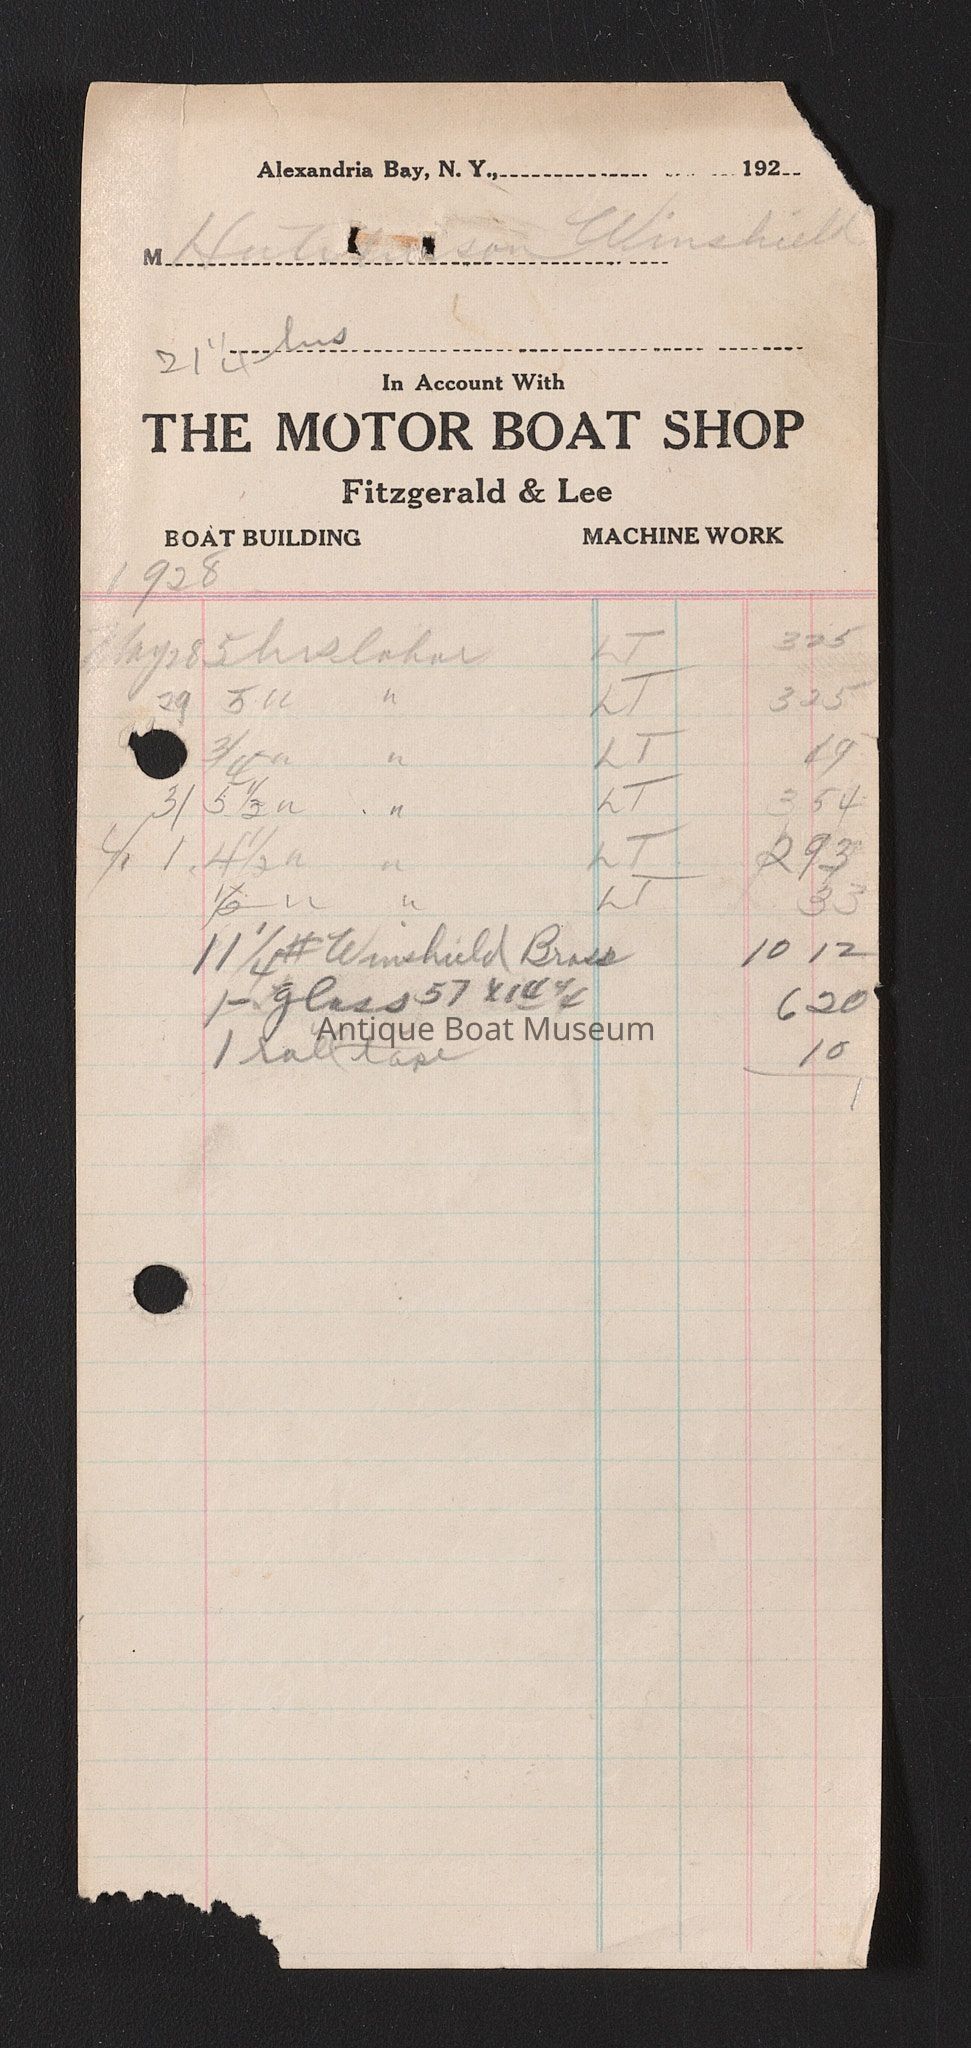 Alexandria Bay, N. Y., 192
M Hutchinson Winshield
21 1/4 hrs
In Account With
THE MOTOR BOAT SHOP
Fitzgerald & Lee
BOAT BUILDING MACHINE WORK
1928
May 28 5 hrs labor LT 325
29 5 " " LT 325
3/4 " " LT 49
31 5 1/2 " " LT 354
6/ 1 4 1/2 " " LT 293
1/2 " " LT 33
11 1/4 # Winshield Brass 10 12
1 - glass 57 x 14 620
Antique Boat Museum
1 roll tape 10
1